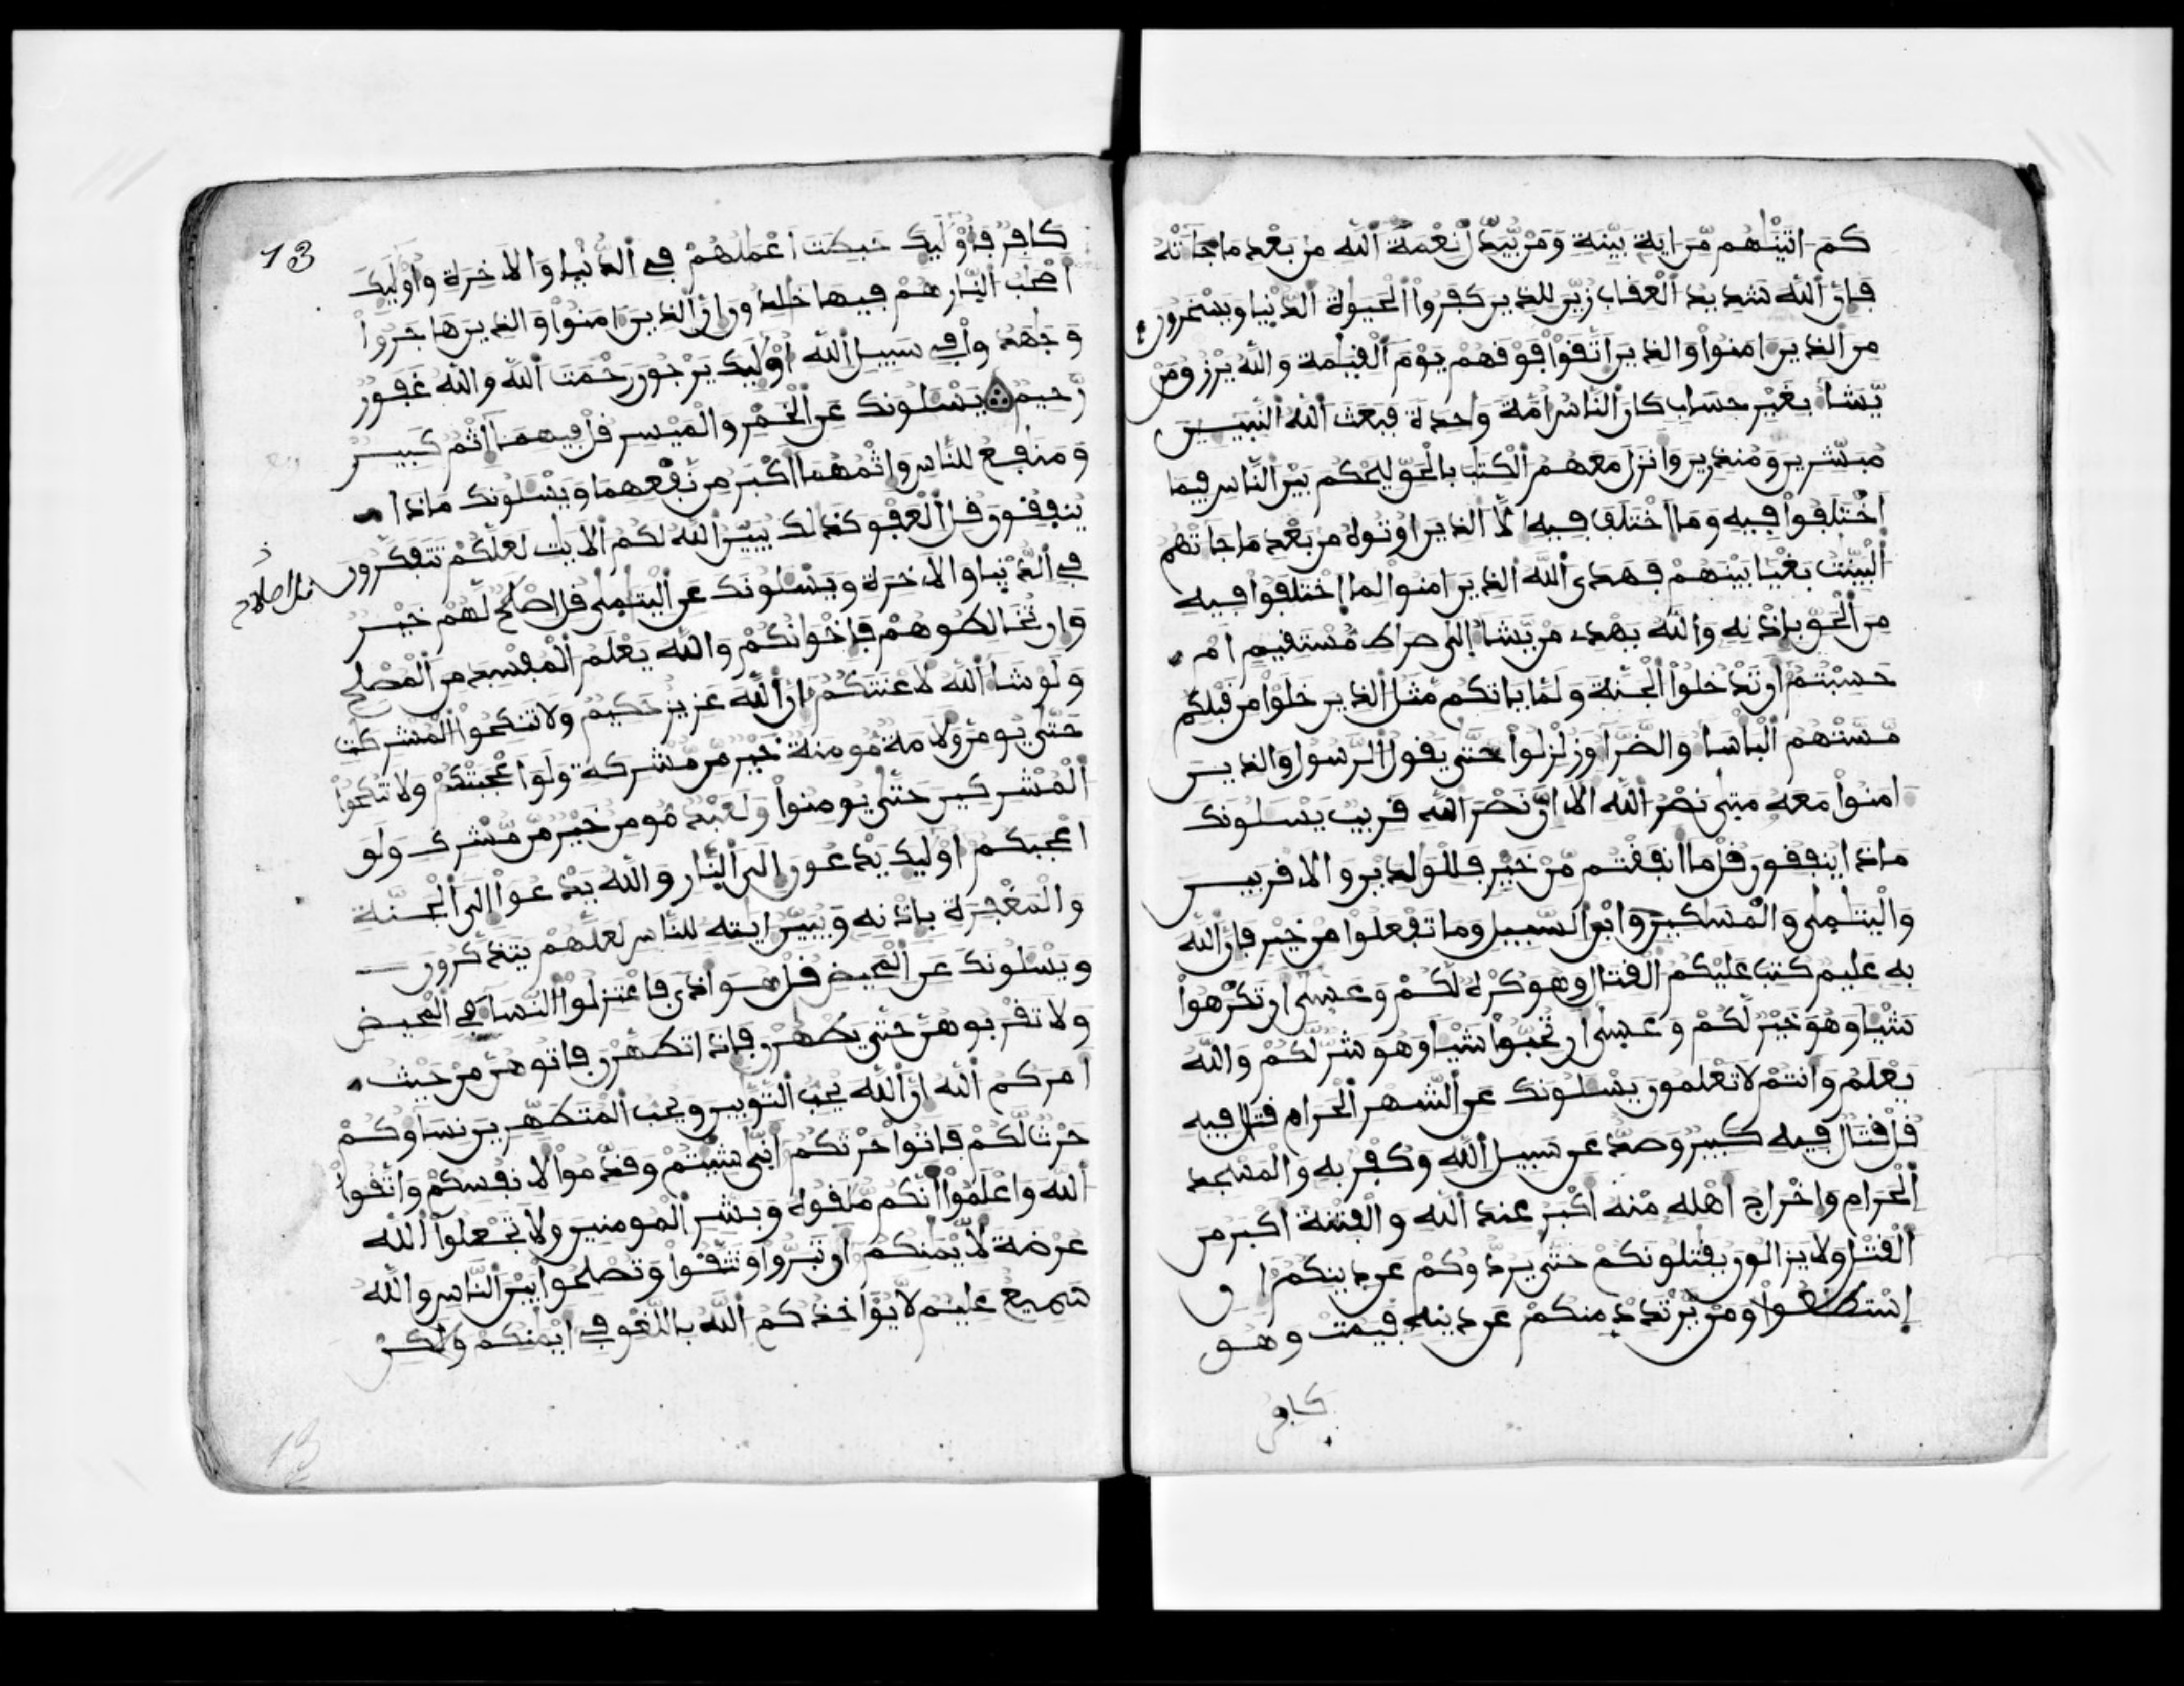 كم اتينهم من اية بينة ومن يبدل نعمة الله من بعد ما جاته
فإن الله شديد العقاب زين للذين كفروا الحيوة الدنيا ويسخرون
من الذين امنوا والذين اتقوا فوقهم يوم القيمة والله يرزق من
يشا بغير حساب كان الناس امة واحدة فبعث الله النبيين
مبشرين ومنذرين وانزل معهم الكتب بالحق ليحكم بين الناس فيما
اختلفوا فيه وما اختلف فيه الا الذين اوتوه من بعد ما جاتهم
البينت بغيا بينهم فهدى الله الذين امنوا لما اختلفوا فيه
من الحق بإذنه والله يهدي من يشا إلى صراط مستقيم ام
حسبتم ان تدخلوا الجنة ولما ياتكم مثل الذين خلوا من قبلكم
مستهم الباسا والضرا وزلزلوا حتى يقول الرسول والذين
امنوا معه متى نصر الله الا إن نصر الله قريب يسلونك
ماذا ينفقون قل ما انفقتم من خير فللولدين والاقربين
واليتمى والمسكين وابن السبيل وما تفعلوا من خير فإن الله
به عليم كتب عليكم القتال وهو كره لكم وعسى ان تكرهوا
شيا وهو خير لكم وعسى ان تحبوا شيا وهو شر لكم والله
يعلم وانتم لا تعلمون يسلونك عن الشهر الحرام قتال فيه
قل قتال فيه كبير وصد عن سبيل الله وكفر به والمسجد
الحرام وإخراج اهله منه اكبر عند الله والفتنة اكبر من
القتل ولا يزالون يقتلونكم حتى يردوكم عن دينكم ان
إستطعوا ومن يرتدد منكم عن دينه فيمت وهو
كافر
13
كافر فأوليك حبطت اعملهم في الدنيا والاخرة وأوليك
اصحب النار هم فيها خلدون ان الذين امنوا والذين هاجروا
وجهدوا في سبيل الله اوليك يرجون رحمت الله والله غفور
رحيم يسلونك عن الخمر والميسر قل فيهما اثم كبير
ومنفع للناس واثمهما اكبر من نفعهما ويسلونك ماذا
ينفقون قل العفو كذلك يبين الله لكم الايت لعلكم تتفكرون
في الدنيا والاخرة ويسلونك عن اليتمى قل اصلح لهم خير
وان تخالطوهم فإخوانكم والله يعلم المفسد من المصلح
ولو شا الله لاعنتكم ان الله عزيز حكيم ولا تنكحوا المشركت
حتى يومن ولامة مومنة خير من مشركة ولو اعجبتكم ولا تنكحوا
المشركين حتى يومنوا ولعبد مومن خير من مشرك ولو
اعجبكم اوليك يدعون الى النار والله يدعوا الى الجنة
والمغفرة بإذنه ويبين ايته للناس لعلهم يتذكرون
ويسلونك عن المحيض قل هو اذى فاعتزلوا النسا في المحيض
ولا تقربوهن حتى يطهرن فإذا تطهرن فاتوهن من حيث
امركم الله ان الله يحب التوبين ويحب المتطهرين نساوكم
حرث لكم فاتوا حرثكم انى شيتم وقدموا لانفسكم واتقوا
الله واعلموا انكم ملقوه وبشر المومنين ولا تجعلوا الله
عرضة لأيمنكم ان تبروا وتتقوا وتصلحوا بين الناس والله
سميع عليم لا يواخذكم الله باللغو في ايمنكم ولكن